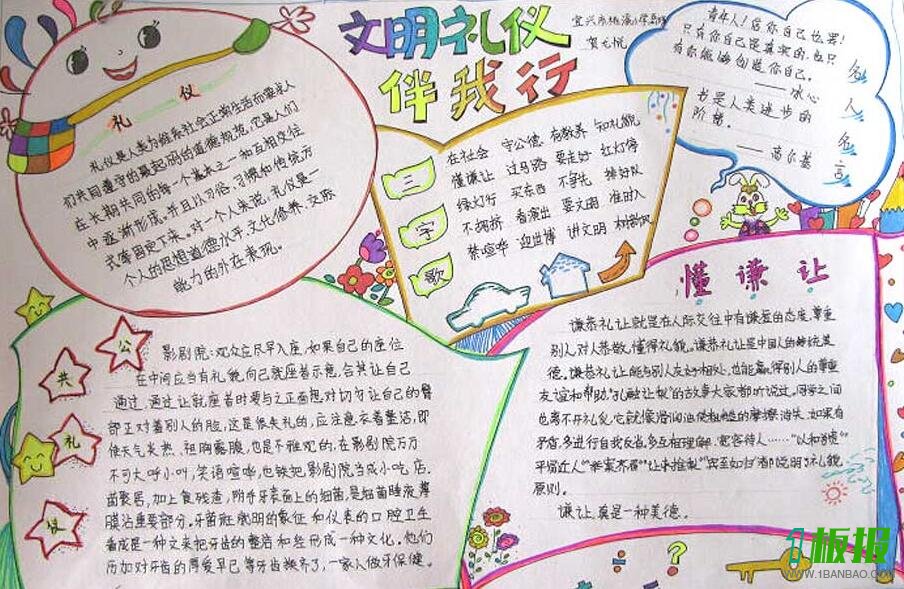 文明礼仪
伴我行
宜兴市桃溪小学
贺
礼 仪
礼仪是人类为维系社会正常生活而要求人
们共同遵守的最起码的道德规范，它是人们
在长期共同的每一个基本之一和互相交往
中逐渐形成，并且以习俗、习惯和传统方
式等固定下来。对一个人来说，礼仪是一
个人的思想道德水平，文化修养，交际
能力的外在表现。
三字歌
在社会 守公德 有教养 知礼貌
懂谦让 过马路 要走好 红灯停
绿灯行 买东西 不争先 排好队
不拥挤 看演出 要文明 准时入
禁喧哗 迎世博 讲文明
名人名言
青年人！信你自己也罢！
只有你自己是真实的，也只
有你能够创造你自己。
——冰心
书是人类进步的
阶梯。
——高尔基
公共礼仪
影剧院：观众应尽早入座，如果自己的座位
在中间应当有礼貌，向已就座者示意，会其让自己
通过，通过让就座者时要与之正面想对，切勿让自己的臀
部正对着别人的脸，这是很失礼的，应注意衣着整洁，即
使天气炎热，袒胸露腹，也是不雅观的，在影剧院万万
不可大呼小叫，笑语喧哗，也铁把影剧院当成小吃店.
菌聚居，加上食残渣，附于牙表面上的细菌，是细菌唾液薄
膜沾重要部分。牙菌斑 的象征 和仪表的口腔卫生
看成是一种文来把牙齿的整 和 形成一种文化。他们
历加对牙齿的厚爱早已 等牙齿 了，一家人做牙保健.
懂谦让
谦恭礼让就是在人际交往中有谦虚的态度，尊重
别人，对人恭敬，懂得礼貌。谦恭礼让是中国人的传统美
德。谦恭礼让能与别人友好相处，也能赢得别人的尊重
友谊和帮助“孔融让梨”的故事大家都听说过。同学之间
也离不开礼貌，它就像润滑油使粗糙的摩擦消失，如果有
矛盾，多进行自我反省，多互相理解，宽容待人……“以和为贵”
平易近人”“举案齐眉”“让利推梨”“宾至如归”都说明了礼貌
原则。
谦让，真是一种美德。
1板报
WWW.1BANBAO.COM